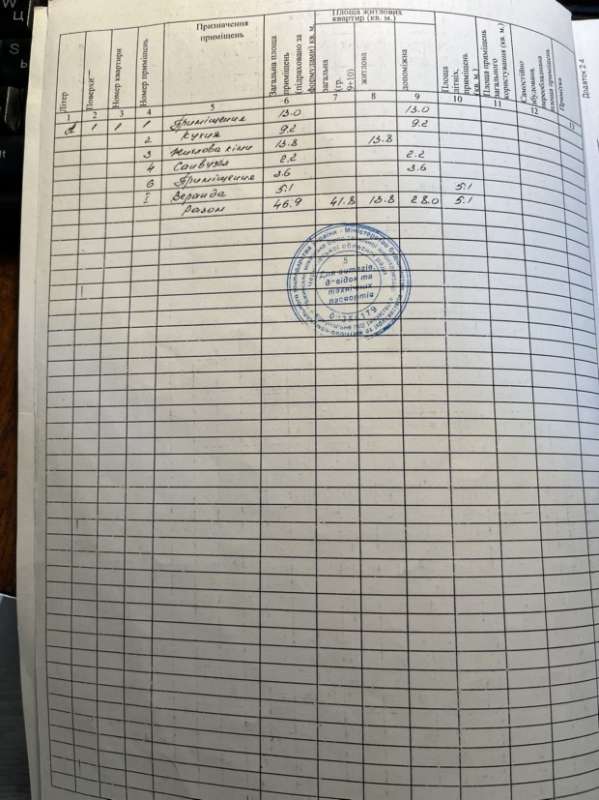 Додаток 2.4
Площа житлових квартир (кв. м.)
Літер
Поверхи
Номер квартири
Номер приміщень
Призначення приміщень
Загальна площа приміщень (підраховано за формулами) кв. м.
загальна (гр. 9+10)
житлова
допоміжна
Площа літніх приміщень кв. м.
Площа приміщень загального користування (кв. м.)
Самостійно збудована, переобладнана площа приміщень
Примітка
1 2 3 4 5 6 7 8 9 10 11 12 13
А 1 1 1 Приміщення 13.0 13.0
2 Кухня 9.2 9.2
3 Житлова кімн 13.8 13.8
4 Санвузол 2.2 2.2
6 Приміщення 3.6 3.6
I Веранда 5.1 5.1
Разом 46.9 41.8 13.8 28.0 5.1
5
Для витягів,
довідок та
технічних
паспортів